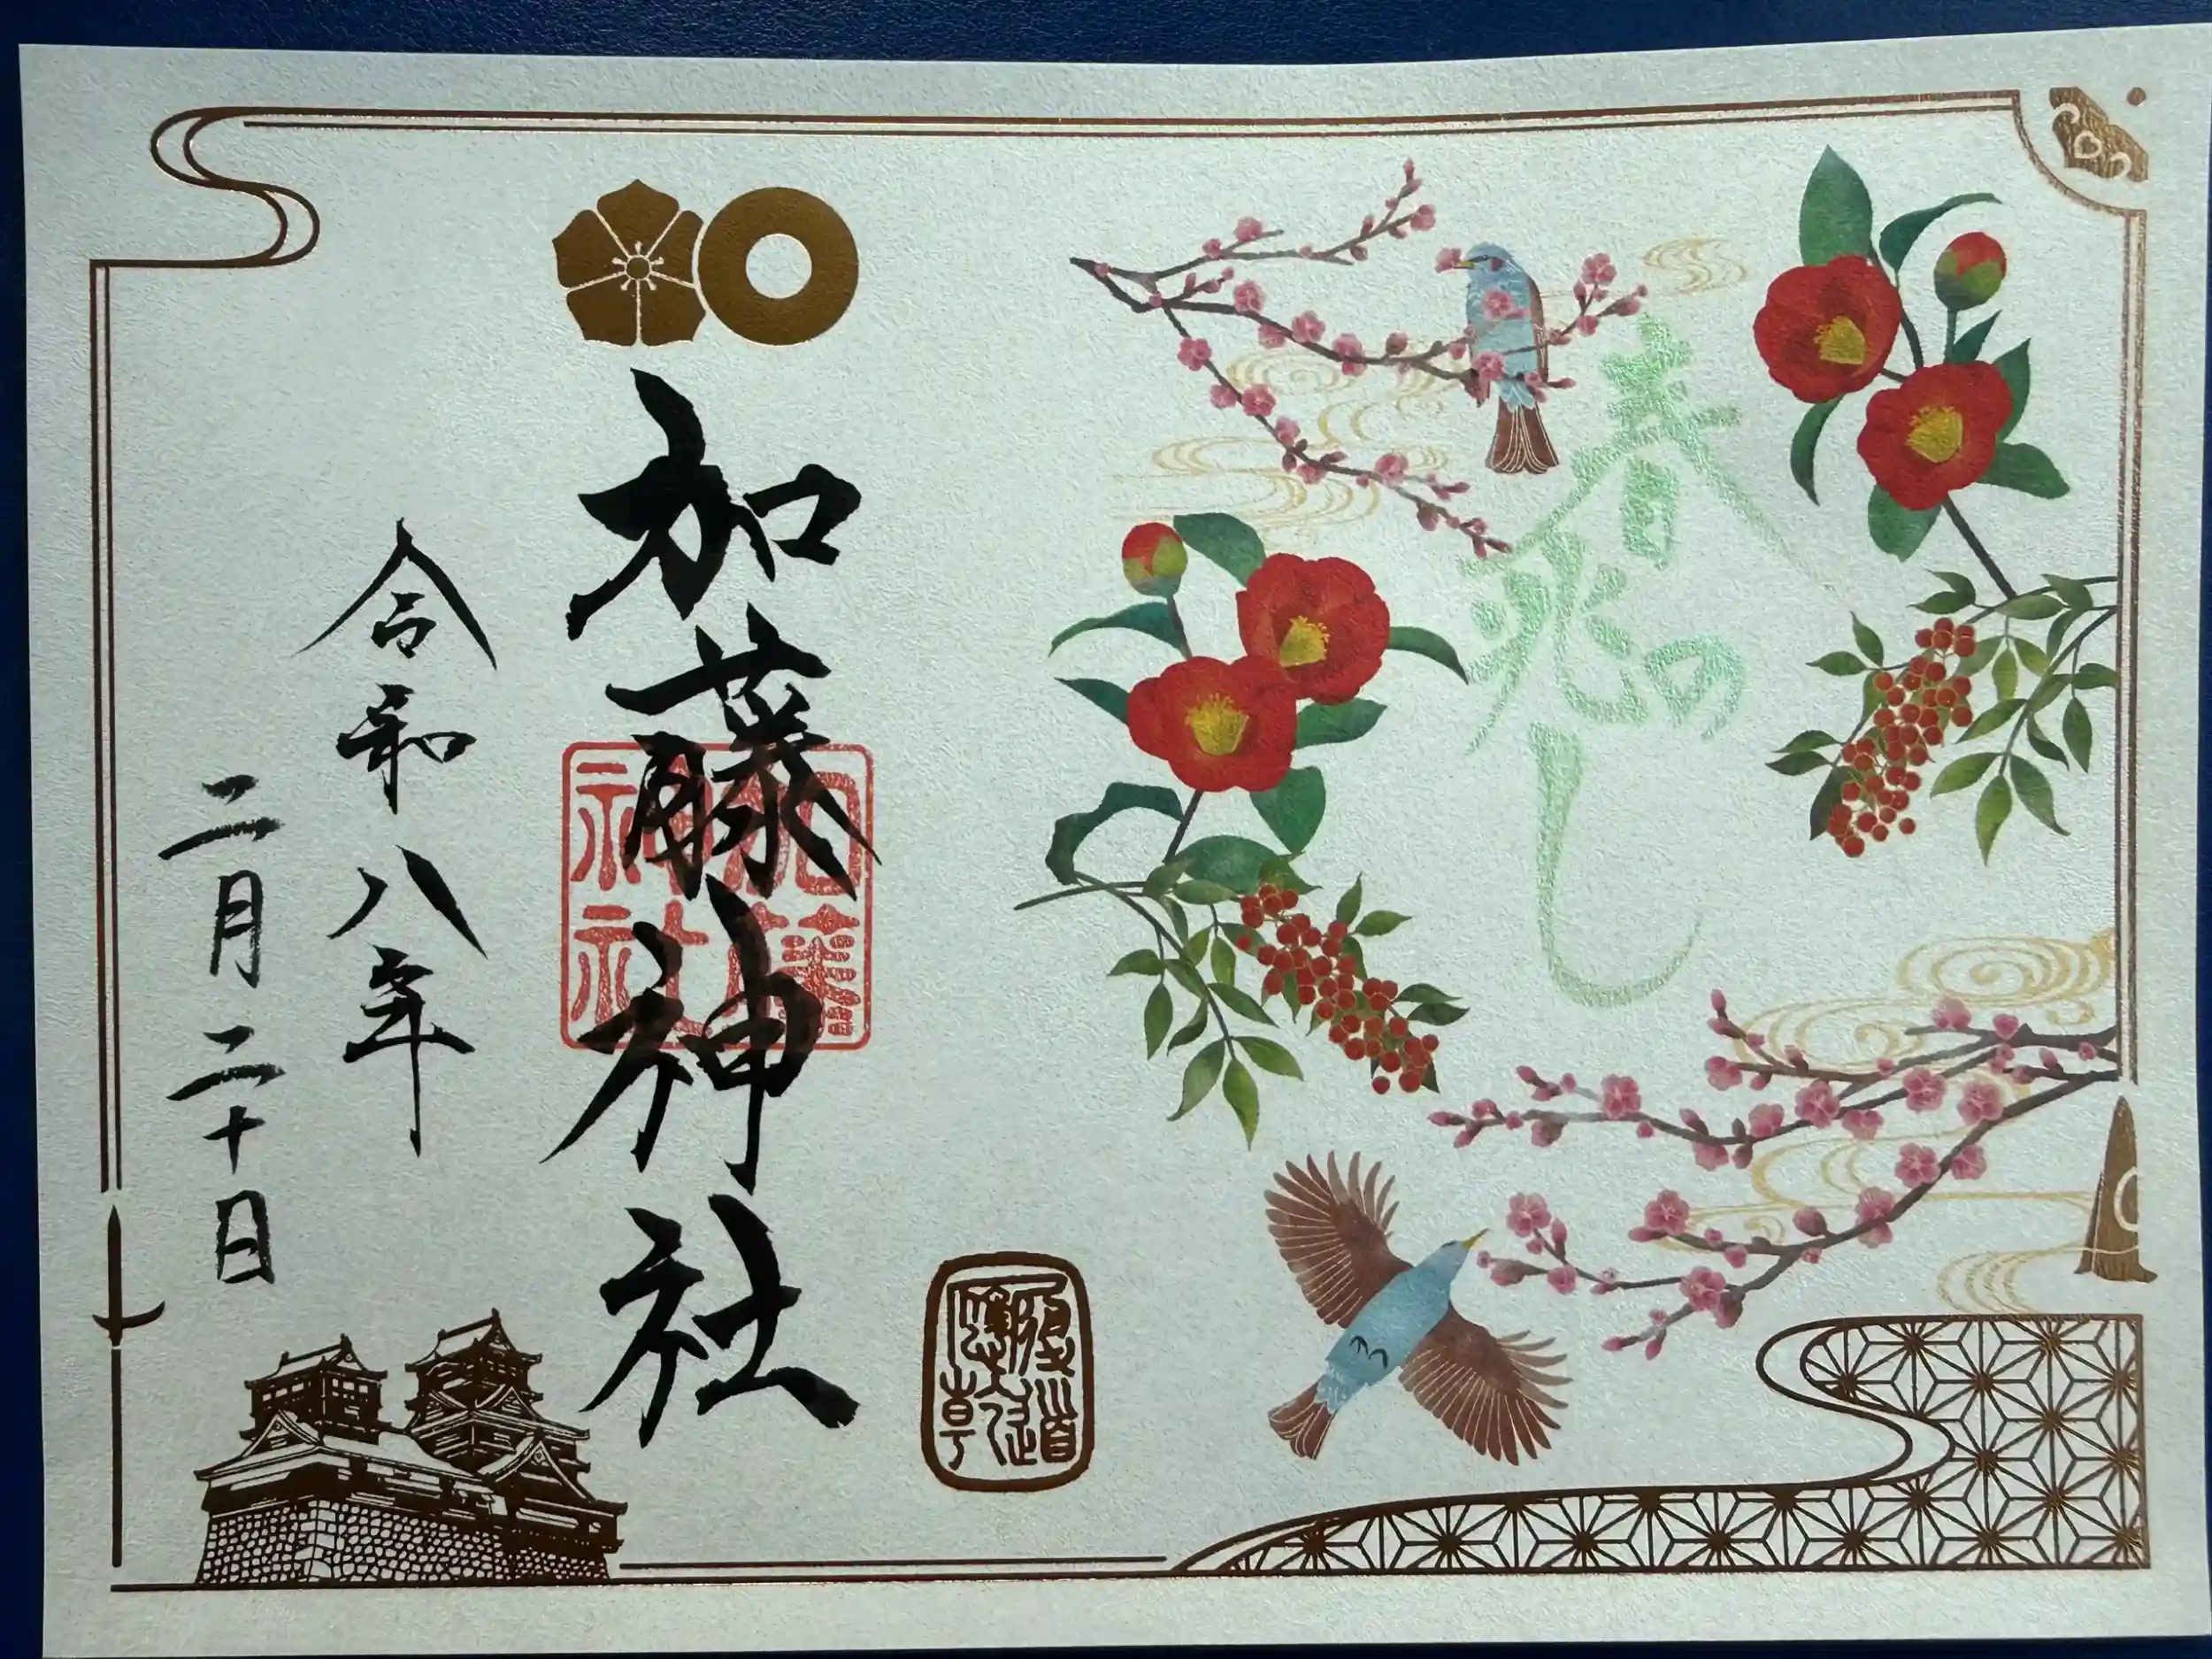 春の兆し
加藤神社
加藤
神社
令和八年
二月二十日